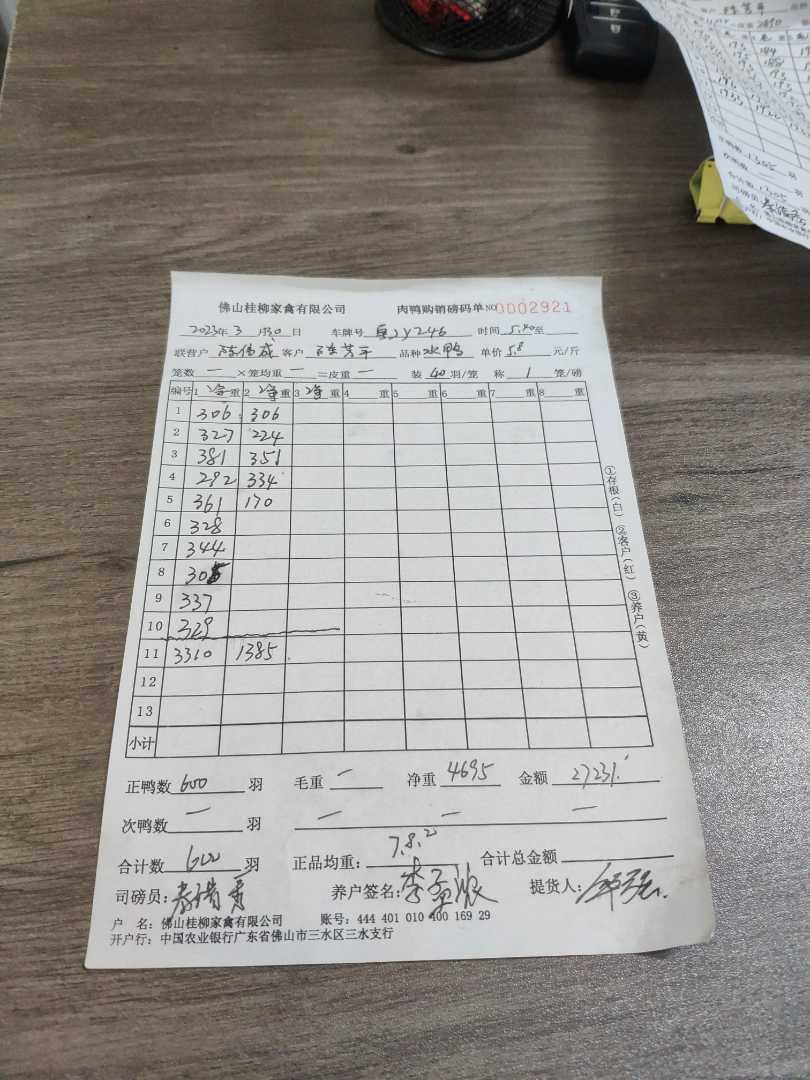 佛山桂柳家禽有限公司 肉鸭购销磅码单 NO 0002921
2023年 3 月30日 车牌号 粤JY246 时间 5.40至
联营户 陈伟成 客户 陈芳平 品种 水鸭 单价 5.8 元/斤
笼数 一 ×笼均重 一 =皮重 一 装 40 羽/笼 称 1 笼/磅
编号 1 净重 2 净重 3 净重 4 重 5 重 6 重 7 重 8 重
1 306 306
2 327 224
3 381 351
4 292 334
5 361 170
6 328
7 344
8 305
9 337
10 329
11 3310 1385
12
13
小计
①存根(白) ②客户(红) ③养户(黄)
正鸭数 600 羽 毛重 一 净重 4695 金额 27231.
次鸭数 一 羽 一 一 一
合计数 600 羽 正品均重: 7.8.2 合计总金额
司磅员: 养户签名: 提货人:
户 名: 佛山桂柳家禽有限公司 账号: 444 401 010 400 169 29
开户行: 中国农业银行广东省佛山市三水区三水支行